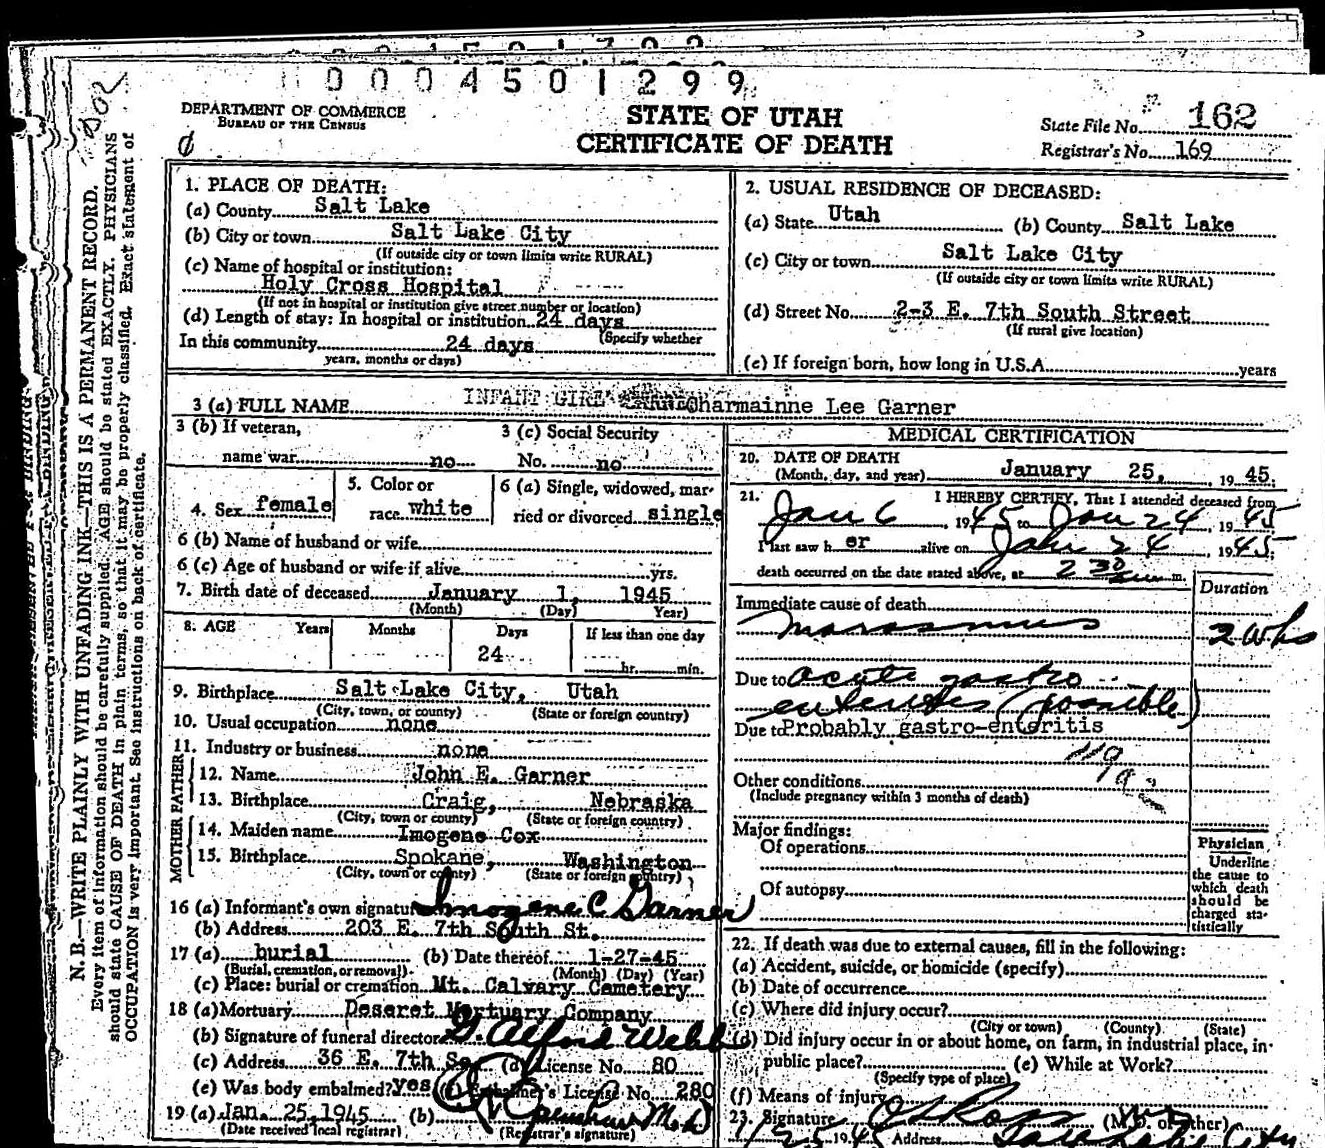 0004501299
DEPARTMENT OF COMMERCE
BUREAU OF THE CENSUS
STATE OF UTAH
CERTIFICATE OF DEATH
State File No. 162
Registrar's No. 169
N. B.—WRITE PLAINLY WITH UNFADING INK—THIS IS A PERMANENT RECORD.
Every item of information should be carefully supplied. AGE should be stated EXACTLY. PHYSICIANS
should state CAUSE OF DEATH in plain terms, so that it may be properly classified. Exact statement of
OCCUPATION is very important. See instructions on back of certificate.
1. PLACE OF DEATH:
(a) County Salt Lake
(b) City or town Salt Lake City
(If outside city or town limits write RURAL)
(c) Name of hospital or institution:
Holy Cross Hospital
(If not in hospital or institution give street number or location)
(d) Length of stay: In hospital or institution 24 days
(Specify whether
In this community 24 days
years, months or days)
2. USUAL RESIDENCE OF DECEASED:
(a) State Utah (b) County Salt Lake
(c) City or town Salt Lake City
(If outside city or town limits write RURAL)
(d) Street No. 2-3 E. 7th South Street
(If rural give location)
(e) If foreign born, how long in U.S.A. years
3 (a) FULL NAME INFANT GIRL Charmainne Lee Garner
3 (b) If veteran,
name war no
3 (c) Social Security
No. no
4. Sex female
5. Color or
race white
6 (a) Single, widowed, mar-
ried or divorced single
6 (b) Name of husband or wife
6 (c) Age of husband or wife if alive yrs.
7. Birth date of deceased January 1, 1945
(Month) (Day) Year)
8. AGE Years Months Days If less than one day
24 hr. min.
9. Birthplace Salt Lake City, Utah
(City, town, or county) (State or foreign country)
10. Usual occupation none
11. Industry or business none
FATHER
12. Name John E. Garner
13. Birthplace Craig, Nebraska
(City, town or county) (State or foreign country)
MOTHER
14. Maiden name Imogene Cox
15. Birthplace Spokane, Washington
(City, town or county) (State or foreign country)
16 (a) Informant's own signature Imogene C Garner
(b) Address 203 E. 7th South St.
17 (a) burial (b) Date thereof 1-27-45
(Burial, cremation, or removal) (Month) (Day) (Year)
(c) Place: burial or cremation Mt. Calvary Cemetery
18 (a) Mortuary Deseret Mortuary Company
(b) Signature of funeral director Alford Webb
(c) Address 36 E. 7th So. (d) License No. 80
(e) Was body embalmed? yes (f) Embalmer's License No. 280
19 (a) Jan. 25, 1945 (b) M.D.
(Date received local registrar) (Registrar's signature)
MEDICAL CERTIFICATION
20. DATE OF DEATH
(Month, day, and year) January 25, 1945.
21. I HEREBY CERTIFY, That I attended deceased from
Jan 6, 1945 to Jan 24, 1945
I last saw her alive on Jan 24, 1945.
death occurred on the date stated above, at 2 30 m.
Duration
Immediate cause of death
marasmus 2 wks
Due to acute gastro
enteritis (possible)
Due to Probably gastro-enteritis
119a
Other conditions
(Include pregnancy within 3 months of death)
Major findings:
Of operations
Of autopsy
Physician
Underline
the cause to
which death
should be
charged sta-
tistically
22. If death was due to external causes, fill in the following:
(a) Accident, suicide, or homicide (specify)
(b) Date of occurrence
(c) Where did injury occur?
(City or town) (County) (State)
(d) Did injury occur in or about home, on farm, in industrial place, in
public place? (e) While at Work?
(Specify type of place)
(f) Means of injury
23. Signature (M. D. or other)
1/25 1945 Address Salt Lake City